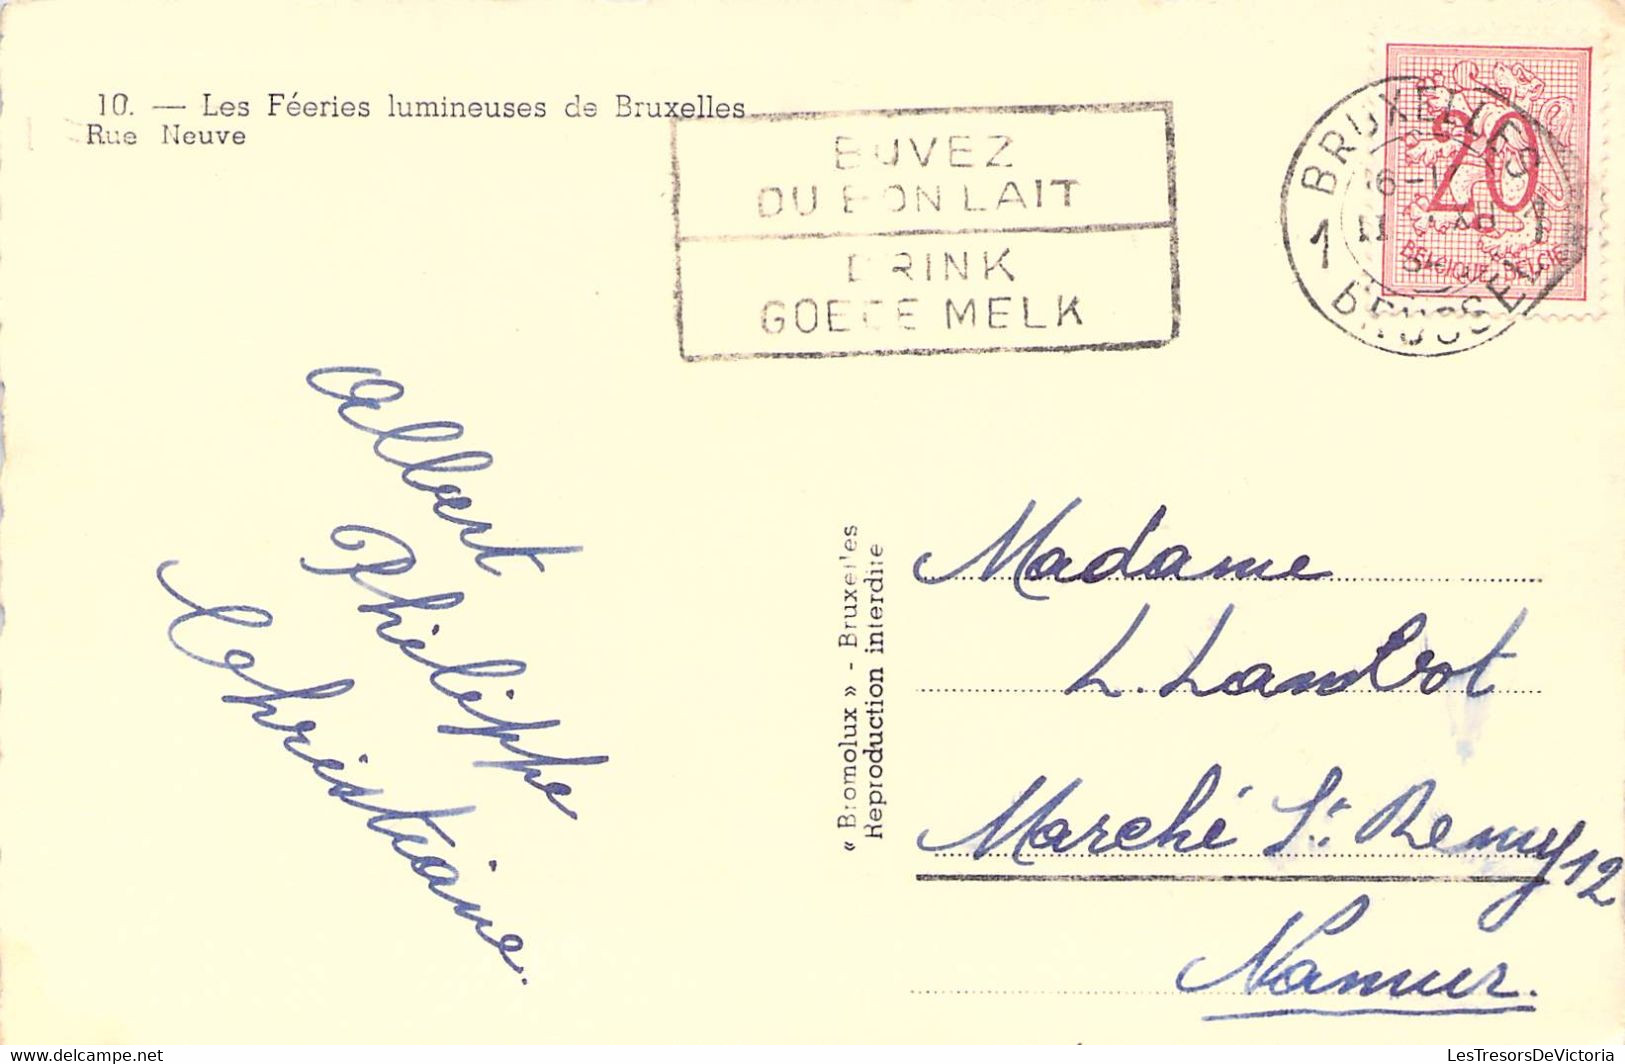 10. — Les Féeries lumineuses de Bruxelles
Rue Neuve
BUVEZ
DU BON LAIT
DRINK
GOEDE MELK
BRUXELLES
1 1
BRUSSEL
20
BELGIQUE BELGIE
Albert
Philippe
Christiane.
« Bromolux » - Bruxelles
Reproduction interdite
Madame
L. Lambot
Marché St. Remy 12
Namur.
LesTresorsDeVictoria
lestresorsdevictoria@outlook.com